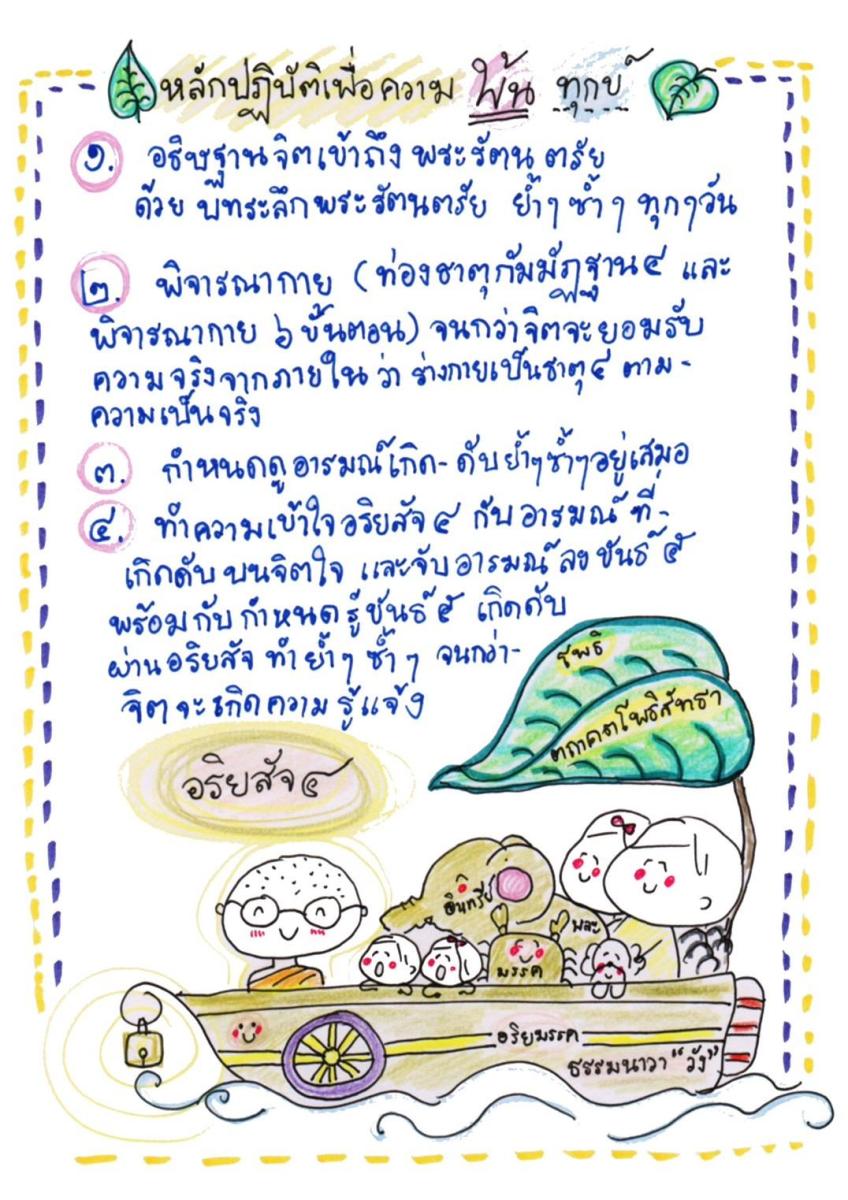 หลักปฏิบัติเพื่อความ พ้น ทุกข์
๑. อธิษฐานจิตเข้าถึง พระรัตนตรัย
ด้วย บทระลึกพระรัตนตรัย ย้ำๆ ซ้ำๆ ทุกๆวัน
๒. พิจารณากาย (ท่องธาตุกัมมัฏฐาน๔ และ
พิจารณากาย ๖ ขั้นตอน) จนกว่าจิตจะยอมรับ
ความจริงจากภายใน ว่า ร่างกายเป็นธาตุ๔ ตาม-
ความเป็นจริง
๓. กำหนดดูอารมณ์เกิด-ดับย้ำๆซ้ำๆอยู่เสมอ
๔. ทำความเข้าใจอริยสัจ ๔ กับอารมณ์ ที่-
เกิดดับ บนจิตใจ และจับอารมณ์ ลง ขันธ์ ๕
พร้อมกับ กำหนดรู้ขันธ์ ๕ เกิดดับ
ผ่านอริยสัจ ทำ ย้ำๆ ซ้ำๆ จนกว่า-
จิตจะเกิดความ รู้แจ้ง
โพธิ
ตถาคตโพธิสัทธา
อริยสัจ ๔
อินทรีย์
พละ
มรรค
อริยมรรค
ธรรมนาวา "วัง"